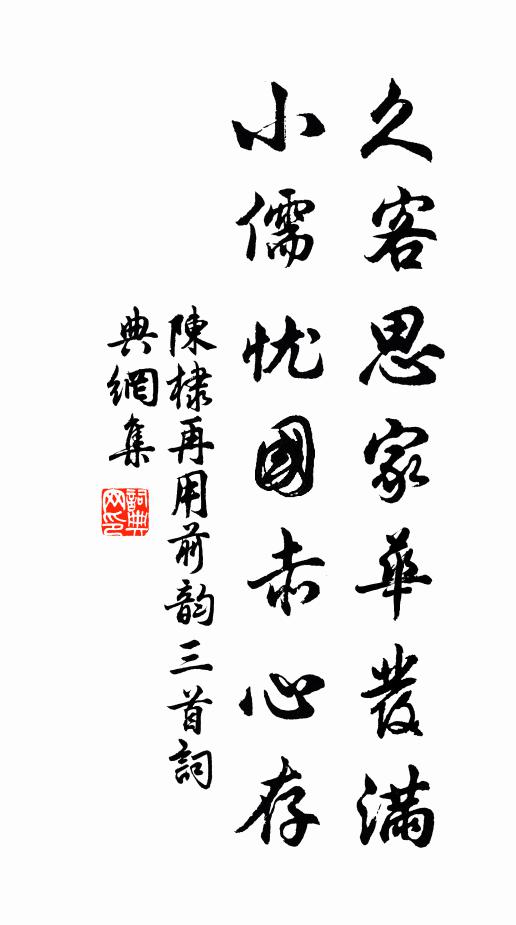 久客思家華發滿
小儒忧國赤心存
陳棣再用前韵三首詞
典網集
詞典
网印